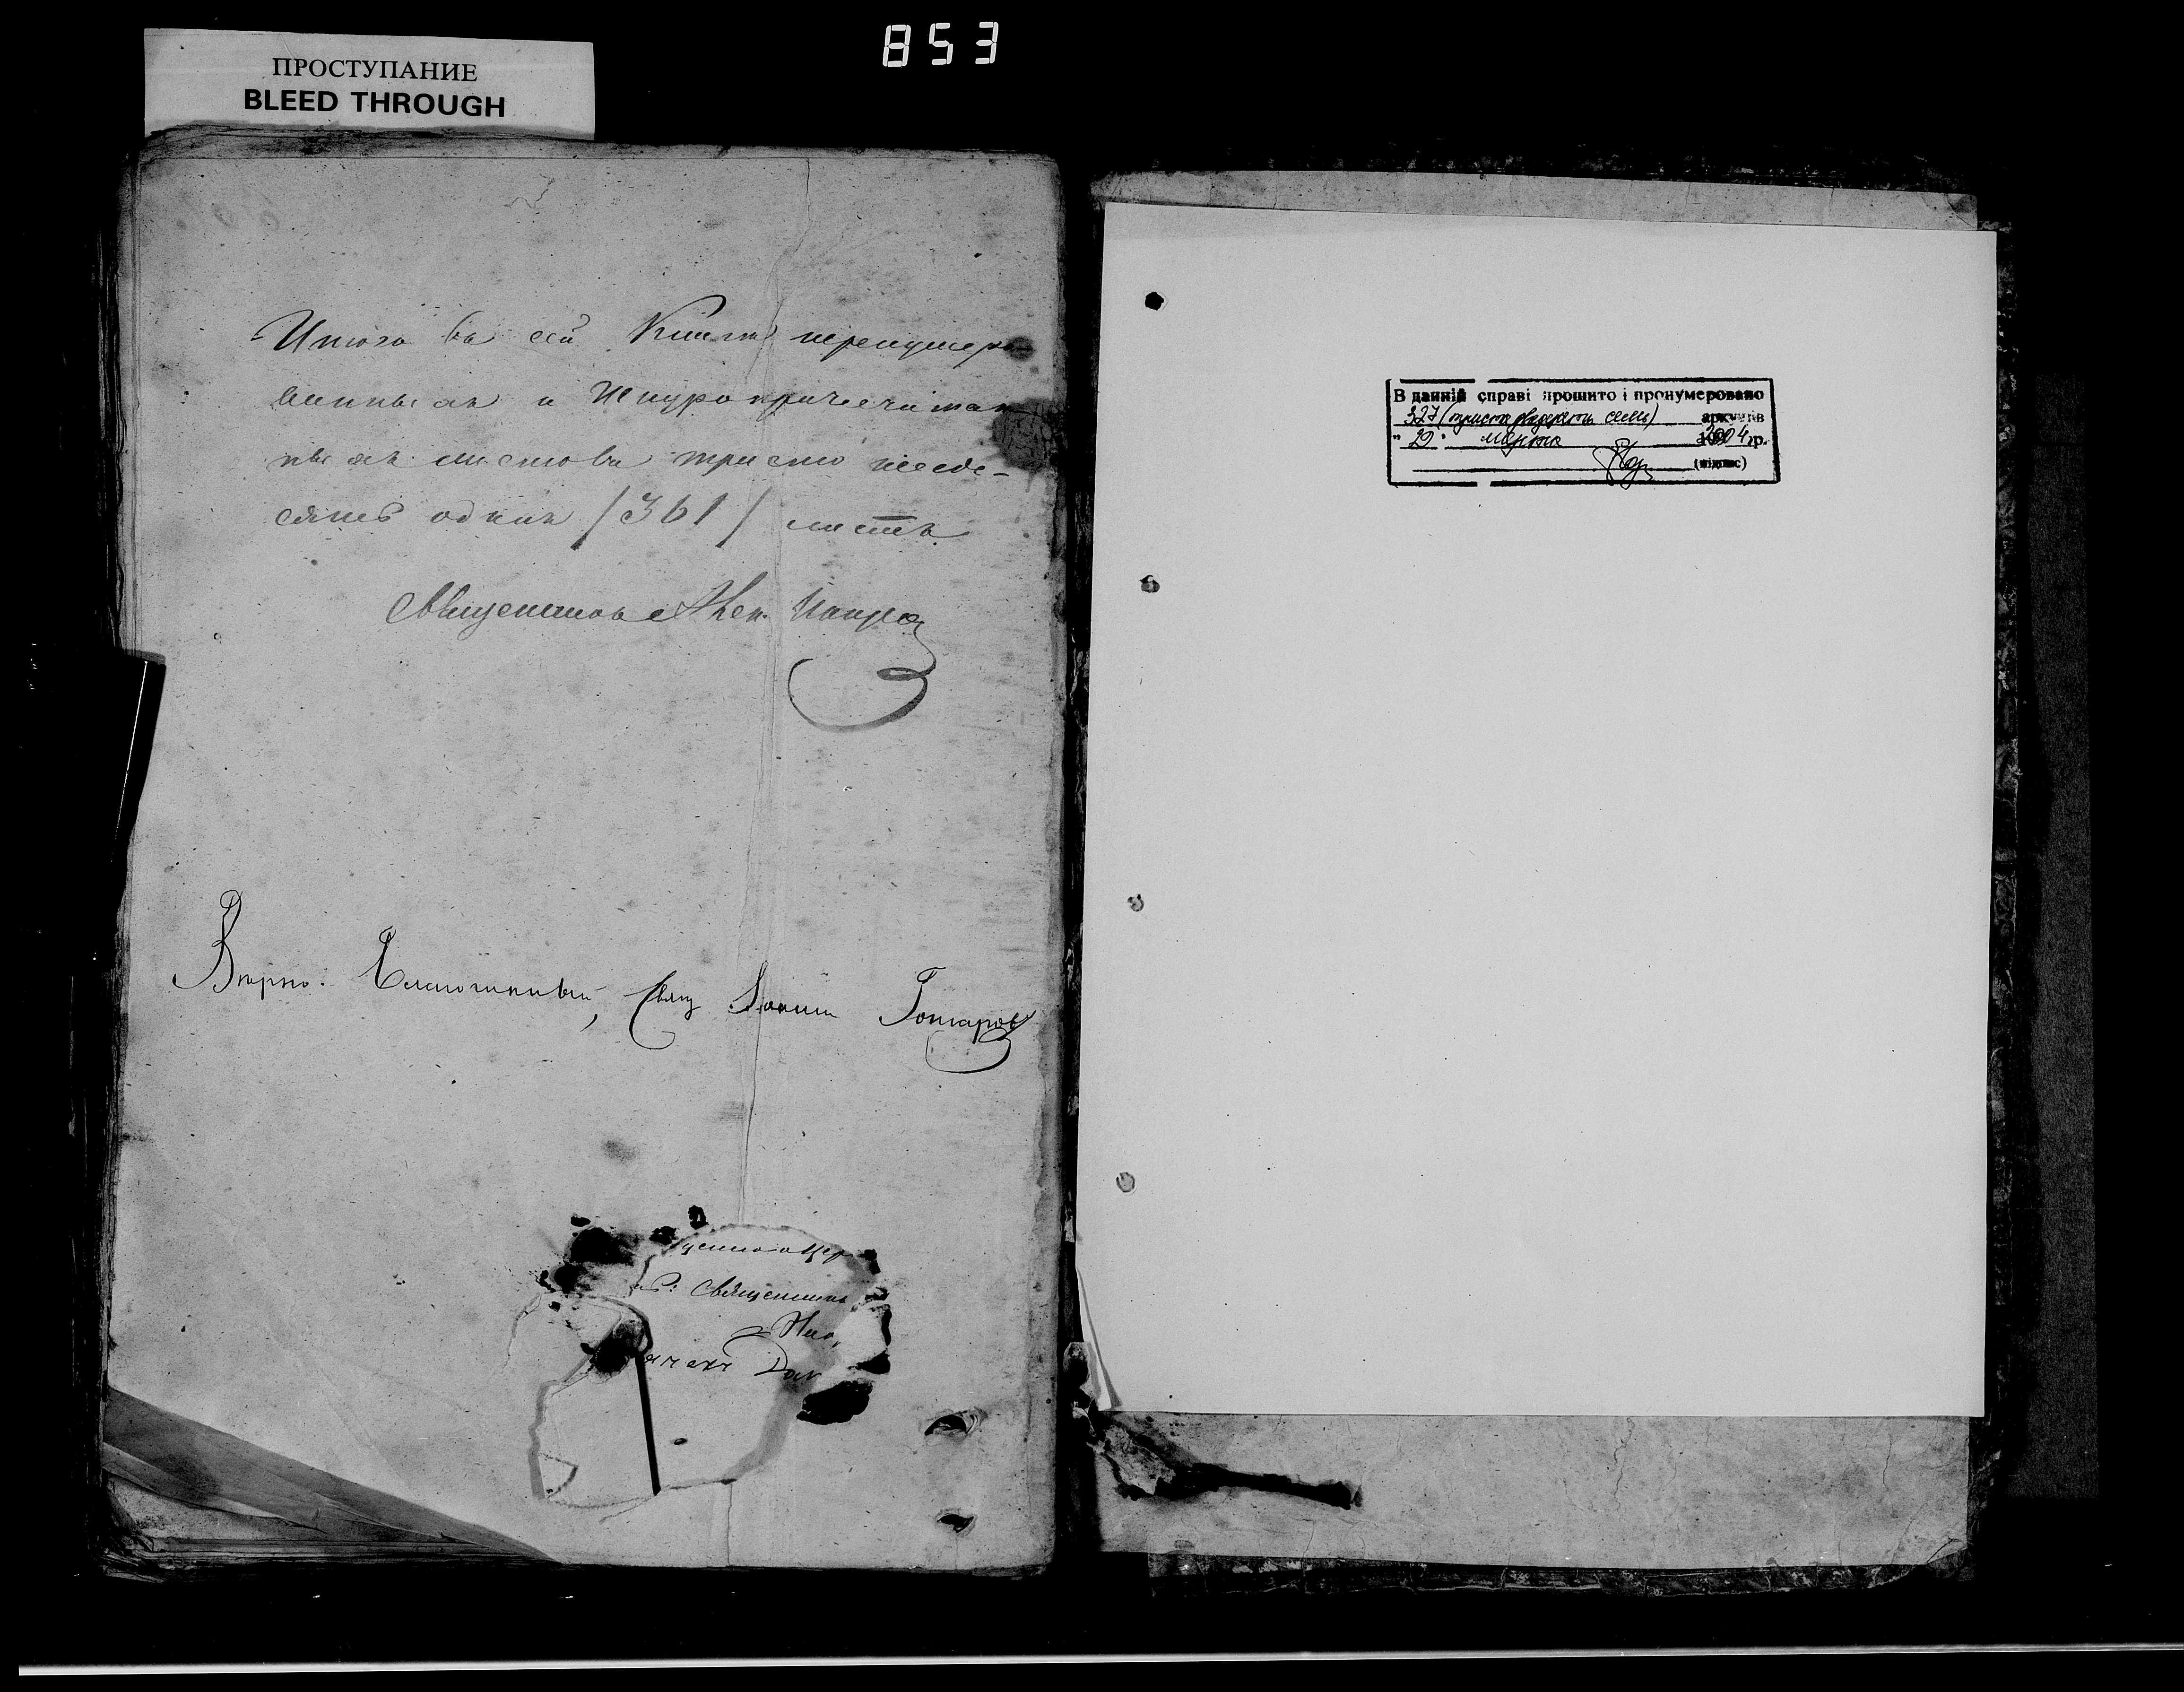 853
ПРОСТУПАНИЕ
BLEED THROUGH
Итого въ сей Книгѣ перенумеро-
ванныхъ и Шнуроприпечатан
ныхъ листовъ триста шесть-
сятъ одинъ /361/ листъ
Священникъ
Вѣрно: Благочинный, Свящ Гончаровъ
Священникъ
В данній справі прошито і пронумеровано
327 (триста двадцять сім) аркушів
"29" марта 2004 р.
(підпис)